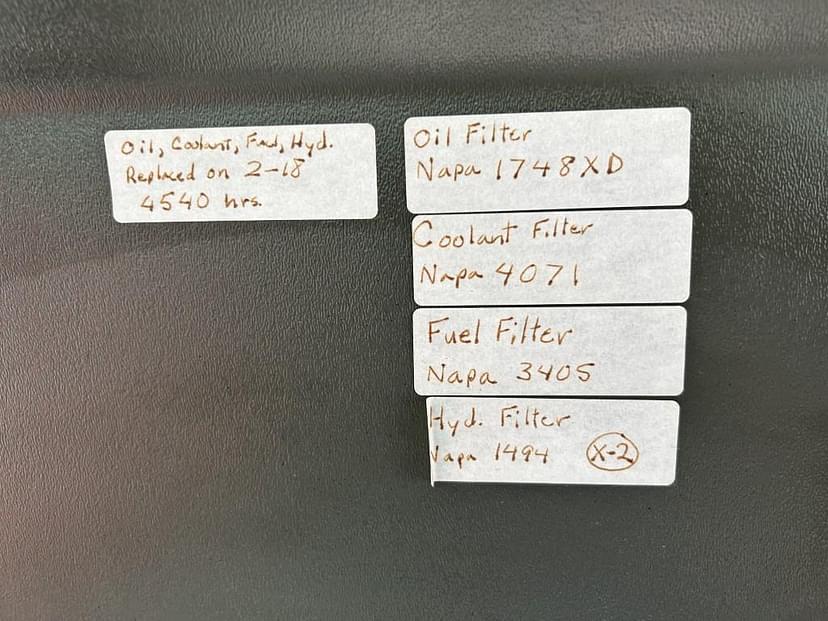 Oil, Coolant, Fuel, Hyd.
Replaced on 2-18
4540 hrs.
Oil Filter
Napa 1748XD
Coolant Filter
Napa 4071
Fuel Filter
Napa 3405
Hyd. Filter
Napa 1494 X-2